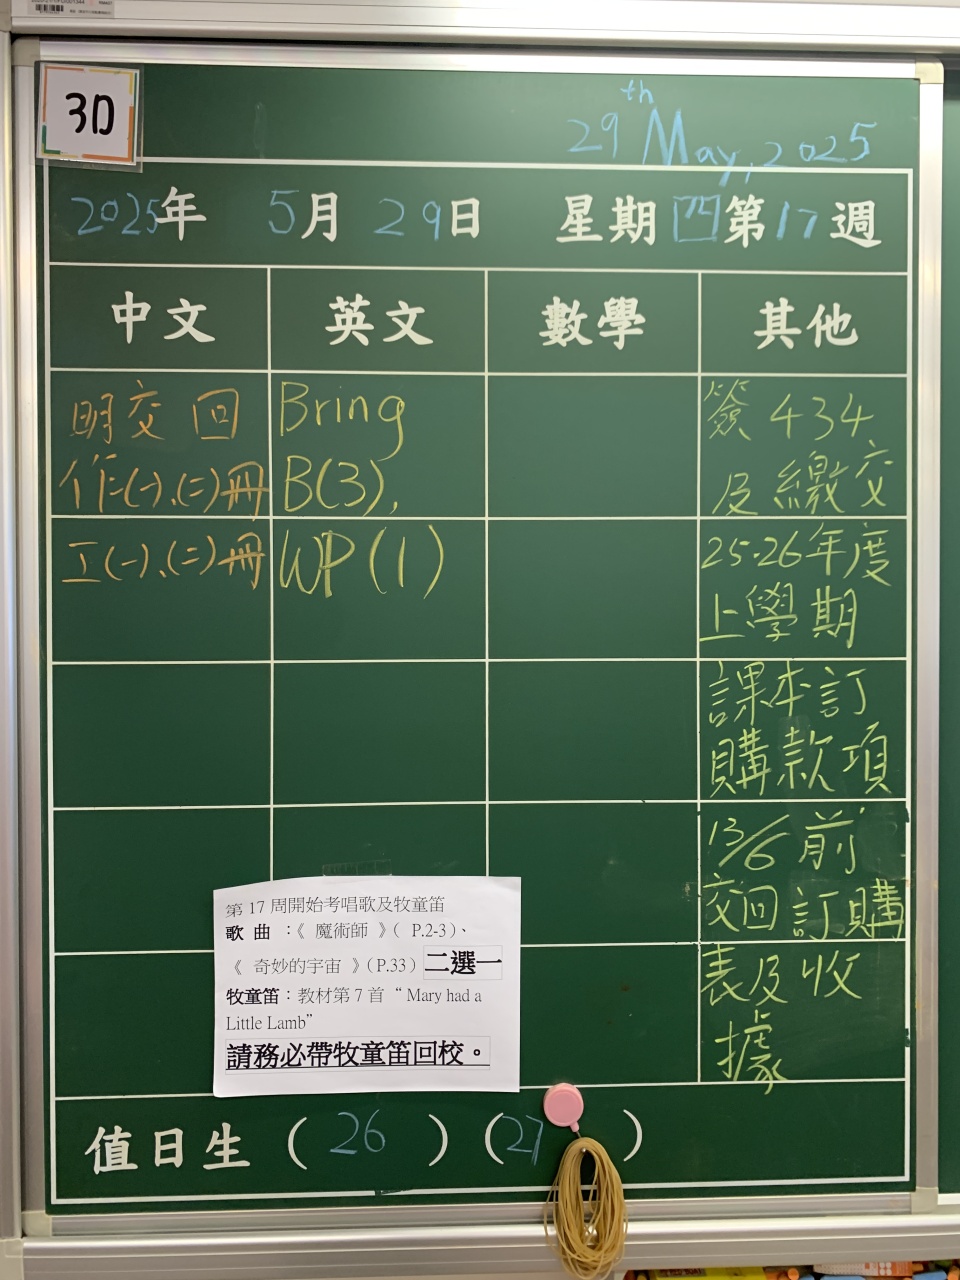 3D
29th May, 2025
2025年 5月 29日 星期四第17週
中文 英文 數學 其他
明交回
作(一)、(二)冊
工(一)、(二)冊
Bring
B(3),
WP(1)
簽434
及繳交
25-26年度
上學期
課本訂
購款項
13/6前
交回訂購
表及收
據
第 17 周開始考唱歌及牧童笛
歌 曲 :《 魔術師 》( P.2-3)、
《 奇妙的宇宙 》(P.33) 二選一
牧童笛：教材第 7 首 “ Mary had a
Little Lamb”
請務必帶牧童笛回校。
值日生 ( 26 ) ( 27 )